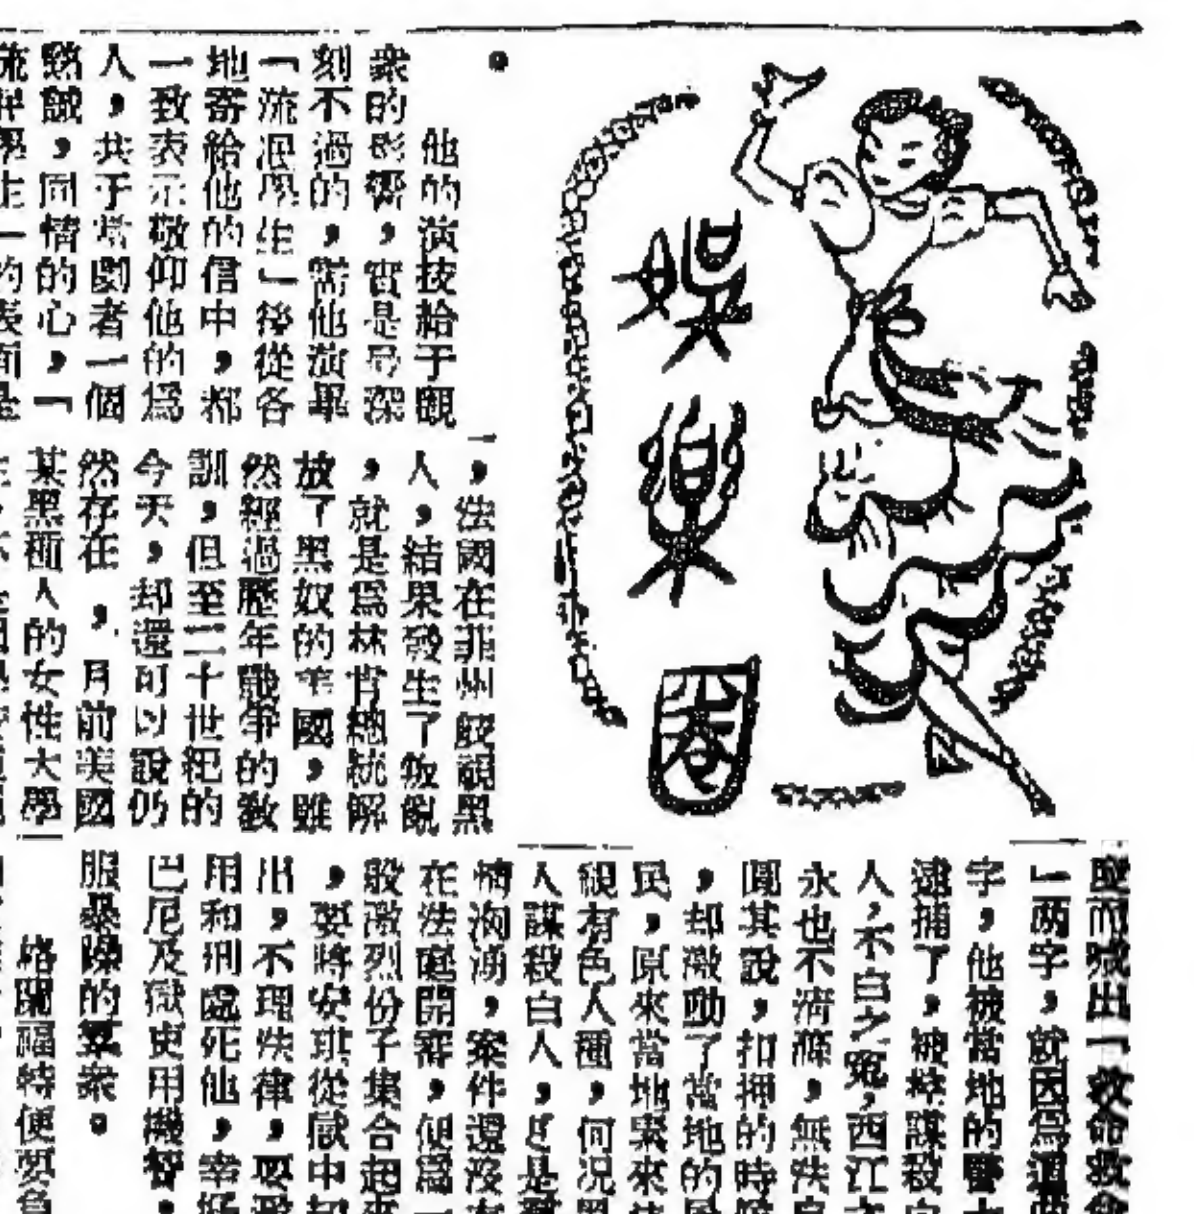 娛樂圈
他的演技給于觀
衆的影響,實是最深
刻不過的,當他演畢
「流氓學生」後從各
地寄給他的信中,都
一致表示敬仰他的爲
人,共于當劇者一個
熱誠,同情的心,「
,法國在非州歧視黑
人,結果發生了叛亂
,就是爲林肯總統解
放了黑奴的美國,雖
然經過歷年戰爭的敎
訓,但至二十世紀的
今天,却還可以說仍
然存在,月前美國
某黑種人的女性大學
而喊出「救命救命
」兩字,就因爲這兩
字,他被當地的警士
逮捕了,被控謀殺白
人,不白之冤,西江之
永也不清滌,無法自
圓其說,扣押的時候
,却激動了當地的居
民,原來當地累來
視有色人種,何况黑
人謀殺白人,於是羣
情洶湧,案件還沒有
在法庭開審,便爲一
般激烈份子集合起來
,要將安琪從獄中刧
出,不理法律,要
用和刑處死他,幸好
巴尼及獄吏用機智,
服暴躁的羣衆。
格蘭福特便要負